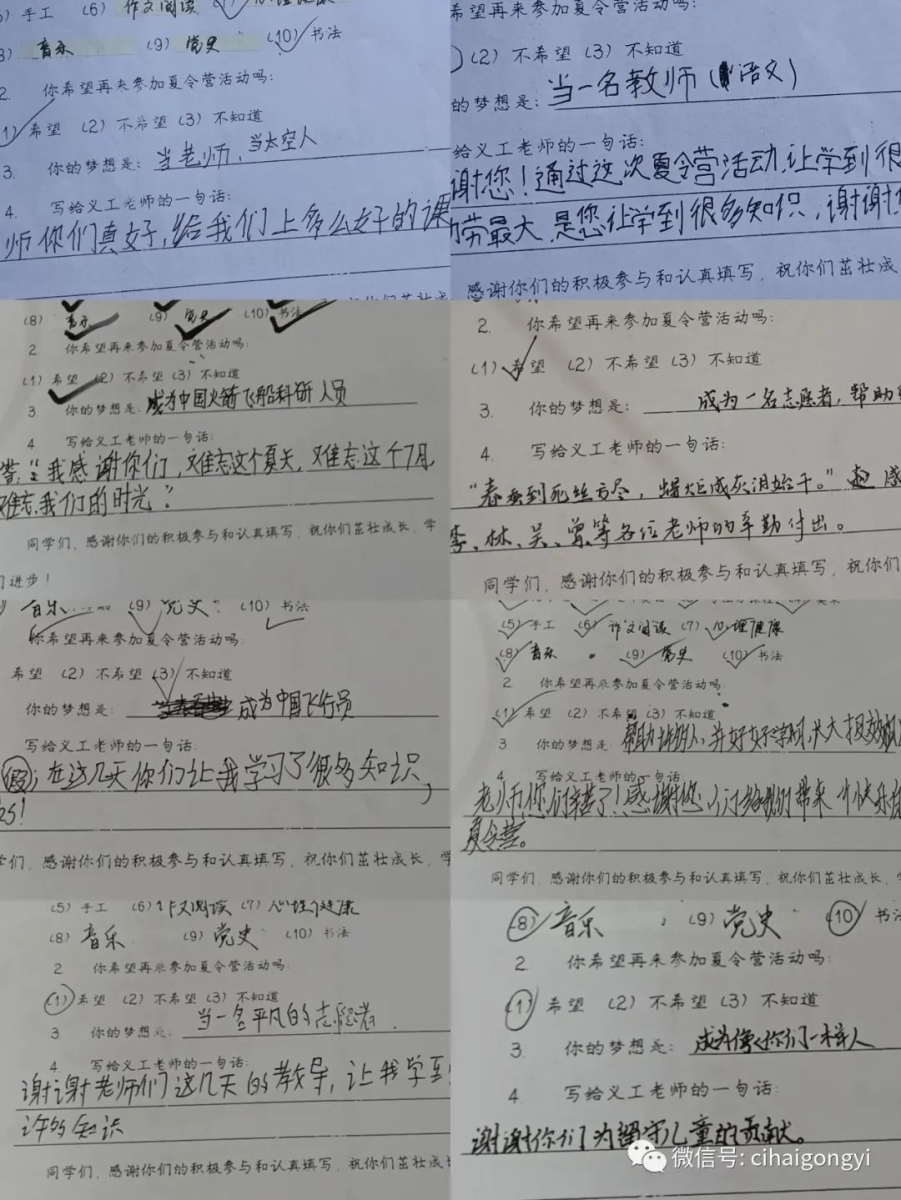 手工 (6) 作文阅读 (7) 心理健康
音乐 (9) 党史 (10) 书法
2. 你希望再来参加夏令营活动吗:
希望 (2) 不希望 (3) 不知道
3. 你的梦想是: 当老师、当太空人
4. 写给义工老师的一句话:
师你们真好,给我们上多么好的课
希望再来参加夏令营活动吗:
(2) 不希望 (3) 不知道
的梦想是: 当一名教师(语文)
给义工老师的一句话:
谢您!通过这次夏令营活动,让学到很
劳最大,是您让学到很多知识,谢谢
感谢你们的积极参与和认真填写,祝你们茁壮成
(8) 音乐 (9) 党史 (10) 书法
2 你希望再来参加夏令营活动吗:
(1) 希望 (2) 不希望 (3) 不知道
3 你的梦想是: 成为中国火箭飞船科研人员
4 写给义工老师的一句话:
答:“我感谢你们,难忘这个夏天,难忘这个7月,
难忘我们的时光。”
同学们,感谢你们的积极参与和认真填写,祝你们茁壮成长,学
们进步!
2. 你希望再来参加夏令营活动吗:
(1) 希望 (2) 不希望 (3) 不知道
3. 你的梦想是: 成为一名志愿者,帮助
4 写给义工老师的一句话:
“春蚕到死丝方尽,蜡炬成灰泪始干。” 感
李、林、吴、曾等各位老师的辛勤付出。
同学们,感谢你们的积极参与和认真填写,祝你们
音乐 (9) 党史 (10) 书法
你希望再来参加夏令营活动吗:
希望 (2) 不希望 (3) 不知道
你的梦想是: 成为中国飞行员
写给义工老师的一句话:
在这几天你们让我学习了很多知识,
学们,感谢你们的积极参与和认真填写,祝你们茁壮成长,学
(5) 手工 (6) 作文阅读 (7) 心理健康
(8) 音乐 (9) 党史 (10) 书法
2 你希望再来参加夏令营活动吗:
(1) 希望 (2) 不希望 (3) 不知道
3 你的梦想是: 帮助许多人,并好好学习,长大报效
4 写给义工老师的一句话:
老师你们辛苦了!感谢您们给我们带来个快乐
夏令营。
同学们,感谢你们的积极参与和认真填写,祝你们茁壮成长,
(5) 手工 (6) 作文阅读 (7) 心理健康
(8) 音乐 (9) 党史 (10) 书法
2 你希望再来参加夏令营活动吗:
(1) 希望 (2) 不希望 (3) 不知道
3 你的梦想是: 当一名平凡的志愿者.
4 写给义工老师的一句话:
谢谢老师们这几天的教导,让我学到
许多知识
同学们,感谢你们的积极参与和认真填写,祝你们茁壮成长
(8) 音乐 (9) 党史 (10) 书法
2. 你希望再来参加夏令营活动吗:
(1) 希望 (2) 不希望 (3) 不知道
3. 你的梦想是: 成为像你们一样人
4 写给义工老师的一句话:
谢谢你们为留守儿童的贡献。
微信号: cihaigongyi